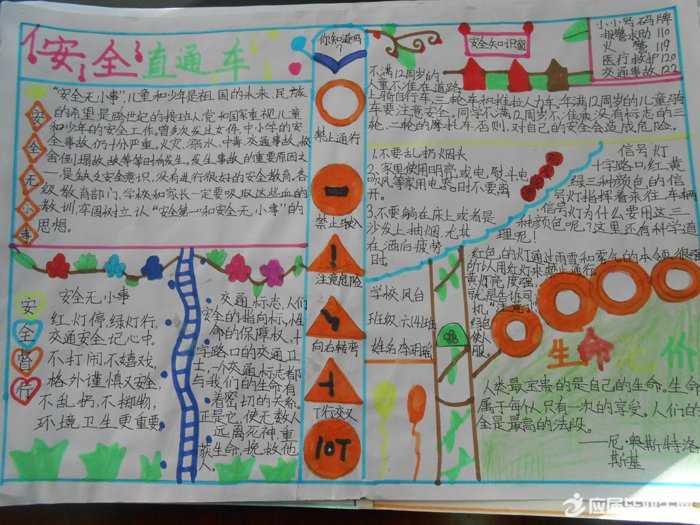 安全直通车
"安全无小事",儿童和少年是祖国的未来、民族
的希望是盛世纪的接班人,党和国家重视儿童
和少年的安全工作。曾多次发过文件。中小学的安全
事故仍十分严重,火灾、溺水、中毒、交通事故、校
舍倒塌故、故等等时有发生。发生事故的重要原因之
一是缺乏安全意识,没有进行很好的安全教育。各
级教育部门、学校和家长一定要吸取这些血的
教训,牢固树立认"安全第一和安全无小事"的
思想。
安全无小事
安全督行
安全无小事
红灯停,绿灯行,
交通安全记心中,
不打闹不嬉戏,
格外谨慎又安全,
不乱扔、不抛物,
环境卫生更重要
交通标志,人们
安全的指向标,性
命的保障权。十
字路口的交通卫
士,一个交通标志都
与我们的生命有
着密切的关系。
正是它,使无数人
远离死神,重
获生命,挽救他
人。
你知道吗
?
禁止通行
禁止驶入
注意危险
向右转弯
T形交叉
10T
安全知识窗
小小号码牌
报警求助 110
火警 119
医疗救护 120
交通事故 122
不满12周岁的
儿童不准在道路
上骑自行车、三轮车和推拉人力车。年满12周岁的儿童骑
车要注意安全。同学不满12周岁不准乘没有标志的三
轮、二轮的摩托车否则,对自己的安全会造成危险。
1.不要乱扔烟头
2.家里使用明亮,或电,熨斗电
吹风等家用电器日不要离
开。
3.不要躺在床上或者是
沙发上抽烟,尤其
在酒后疲劳
时
信号灯
十字路口红、黄、
绿三种颜色的信
号灯指挥着来往车辆
信号灯为什么要用这三
种颜色呢?这里还有科学道
理呢!
红色的灯透过雨雪和雾气的本领很强
所以用红灯来禁止通行
学校:凤台
班级:六(4)班
姓名:李明瑶
生命无价
人类最宝贵的是自己的生命。生命
属于每个人只有一次的享受。人们的安
全是最高的法级。
—尼·奥斯特洛
斯基